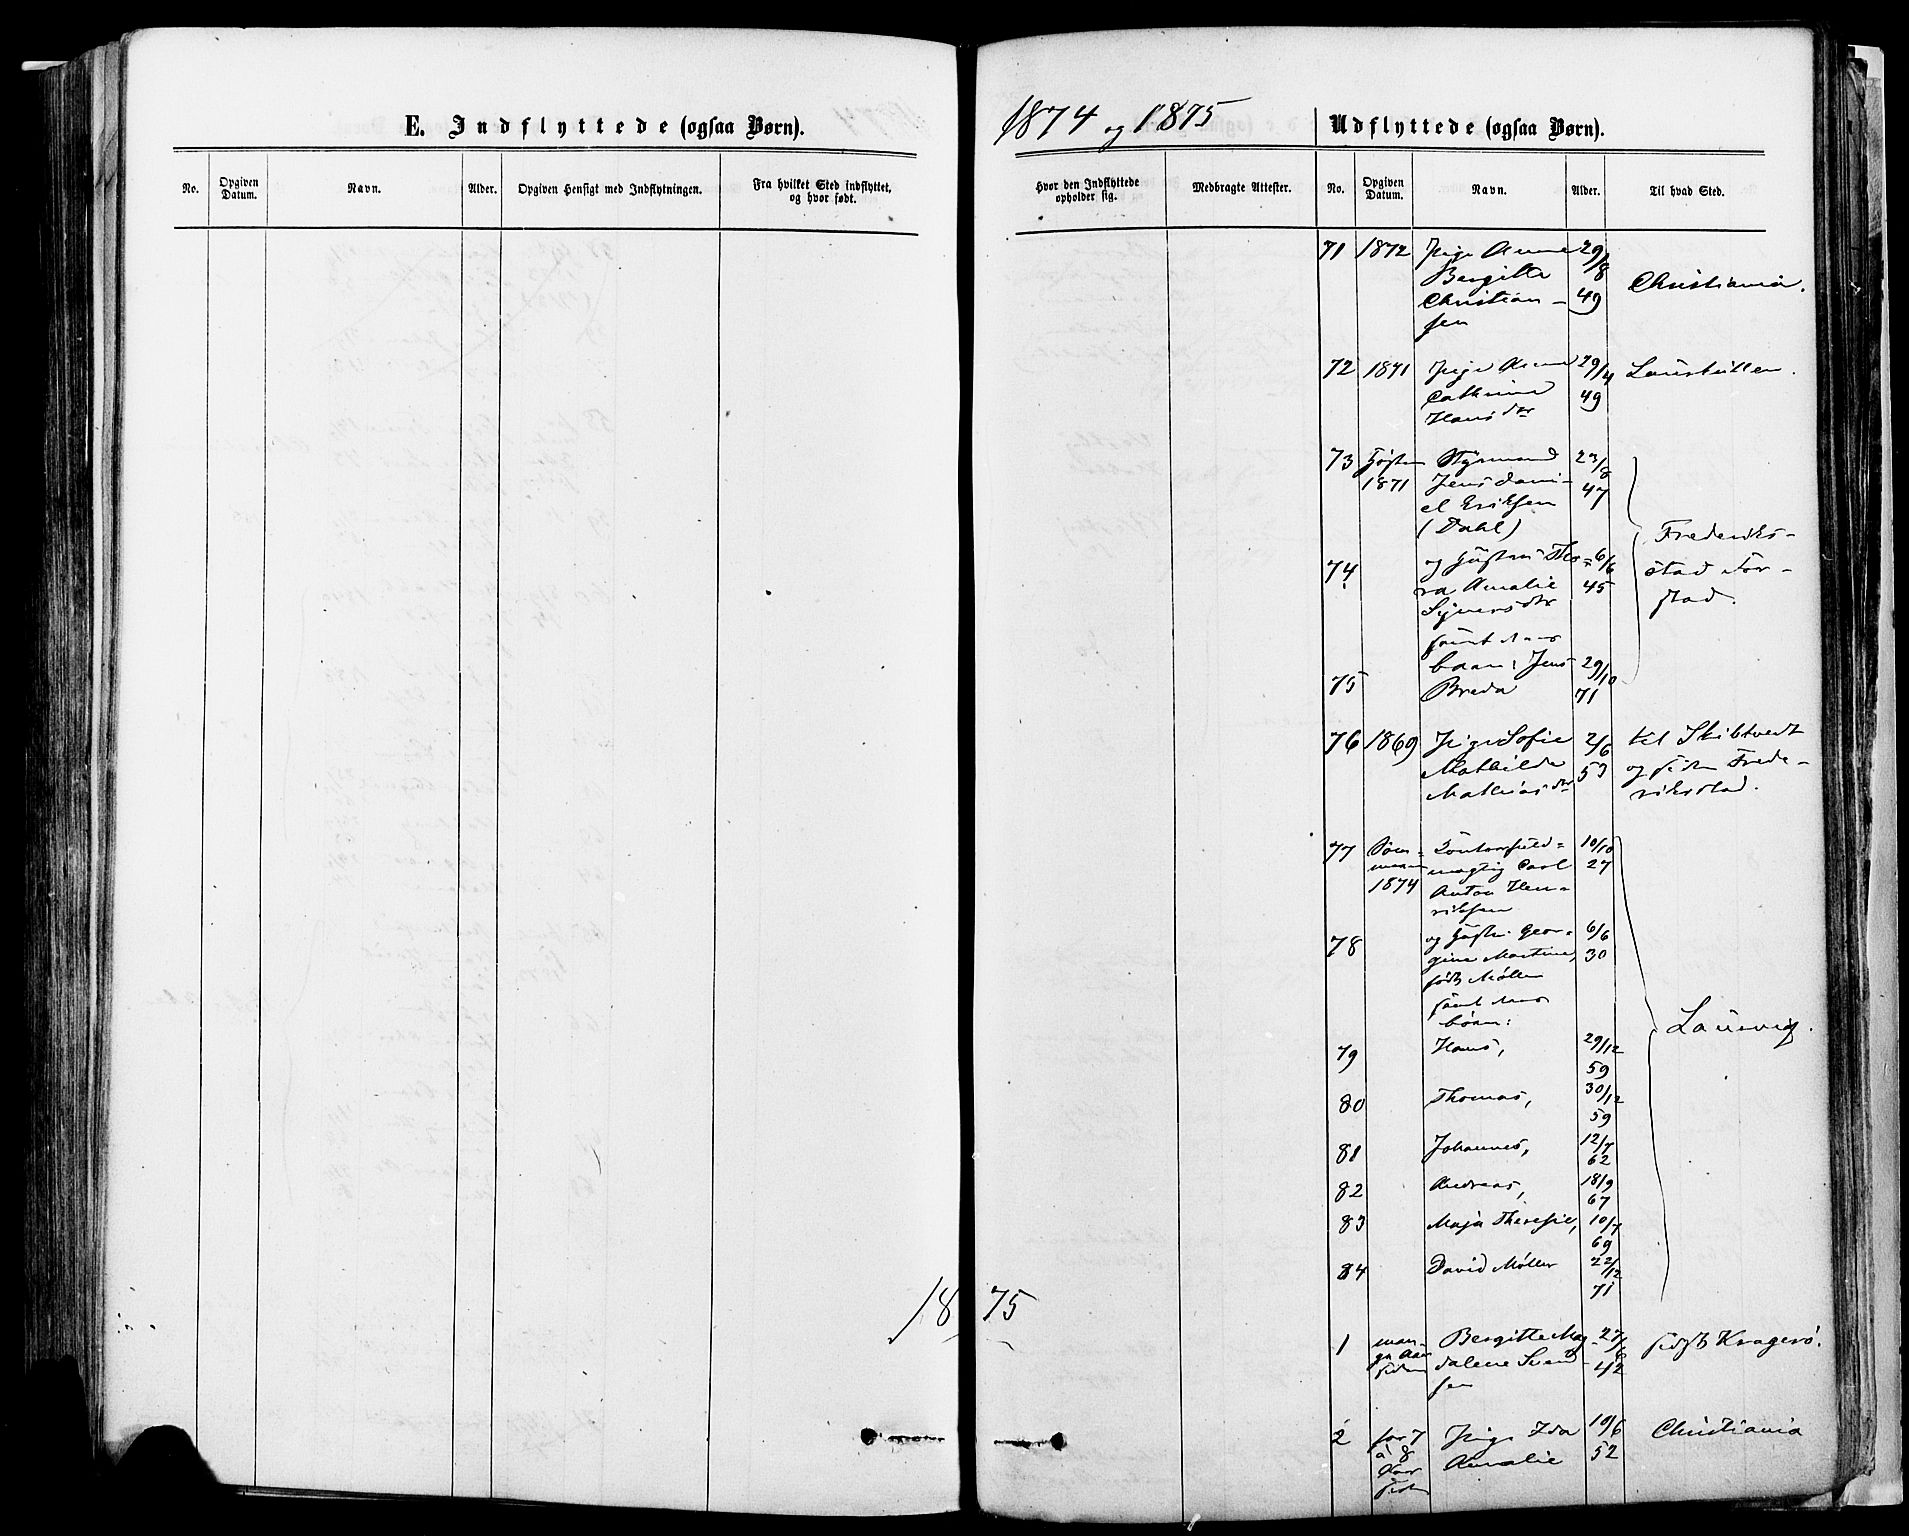 E. Indflyttede (ogsaa Børn).
No.
Opgiven Datum.
Navn.
Alder.
Opgiven Hensigt med Indflytningen.
Fra hvilket Sted indflyttet, og hvor født.
1874 og 1875
Udflyttede (ogsaa Børn).
Hvor den Indflyttede opholder sig.
Medbragte Attester.
No.
Opgiven Datum.
Navn.
Alder.
Til hvad Sted.
71 1872 Pige Anne 29/8
Bergitte
Christian- 49 Christiania.
sen
72 1871 Pige Anne 29/4
Cathrine 49
Hansdtr
73 Høsten Styrmand 23/8
1871 Jens Dani- 47
el Eriksen
(Dahl)
Frederiks-
74 og Hustru Tho- 6/6 stad For-
ra Amalie 45 stad.
Syversdtr
samt
barn: Jens 29/10
75 Breda 71
76 1869 Pige Sofie 2/6 til Skibtvedt
Mathilde 53 og siden Frede-
Mathiasdtr rikstad.
77 Som- Contorfuld- 10/10
meren mægtig Carl 27
1874 Anton Hen-
riksen
78 og Hustr. Geor- 6/6
gine Martine, 30
født Møller
samt
børn:
Laurvig.
79 Hans, 29/12
59
80 Thomas, 30/12
59
81 Johannes, 12/7
62
82 Andreas, 18/9
67
83 Maja Theresie, 10/7
69
84 David Møller 22/12
71
1875
1 man- Bergitte Mag- 27/6 sidst Kragerø.
ge Aar dalene Svend- 42
siden sen
2 for 7 Pige Ida 19/6 Christiania
à 8 Amalie 52
Aar
siden